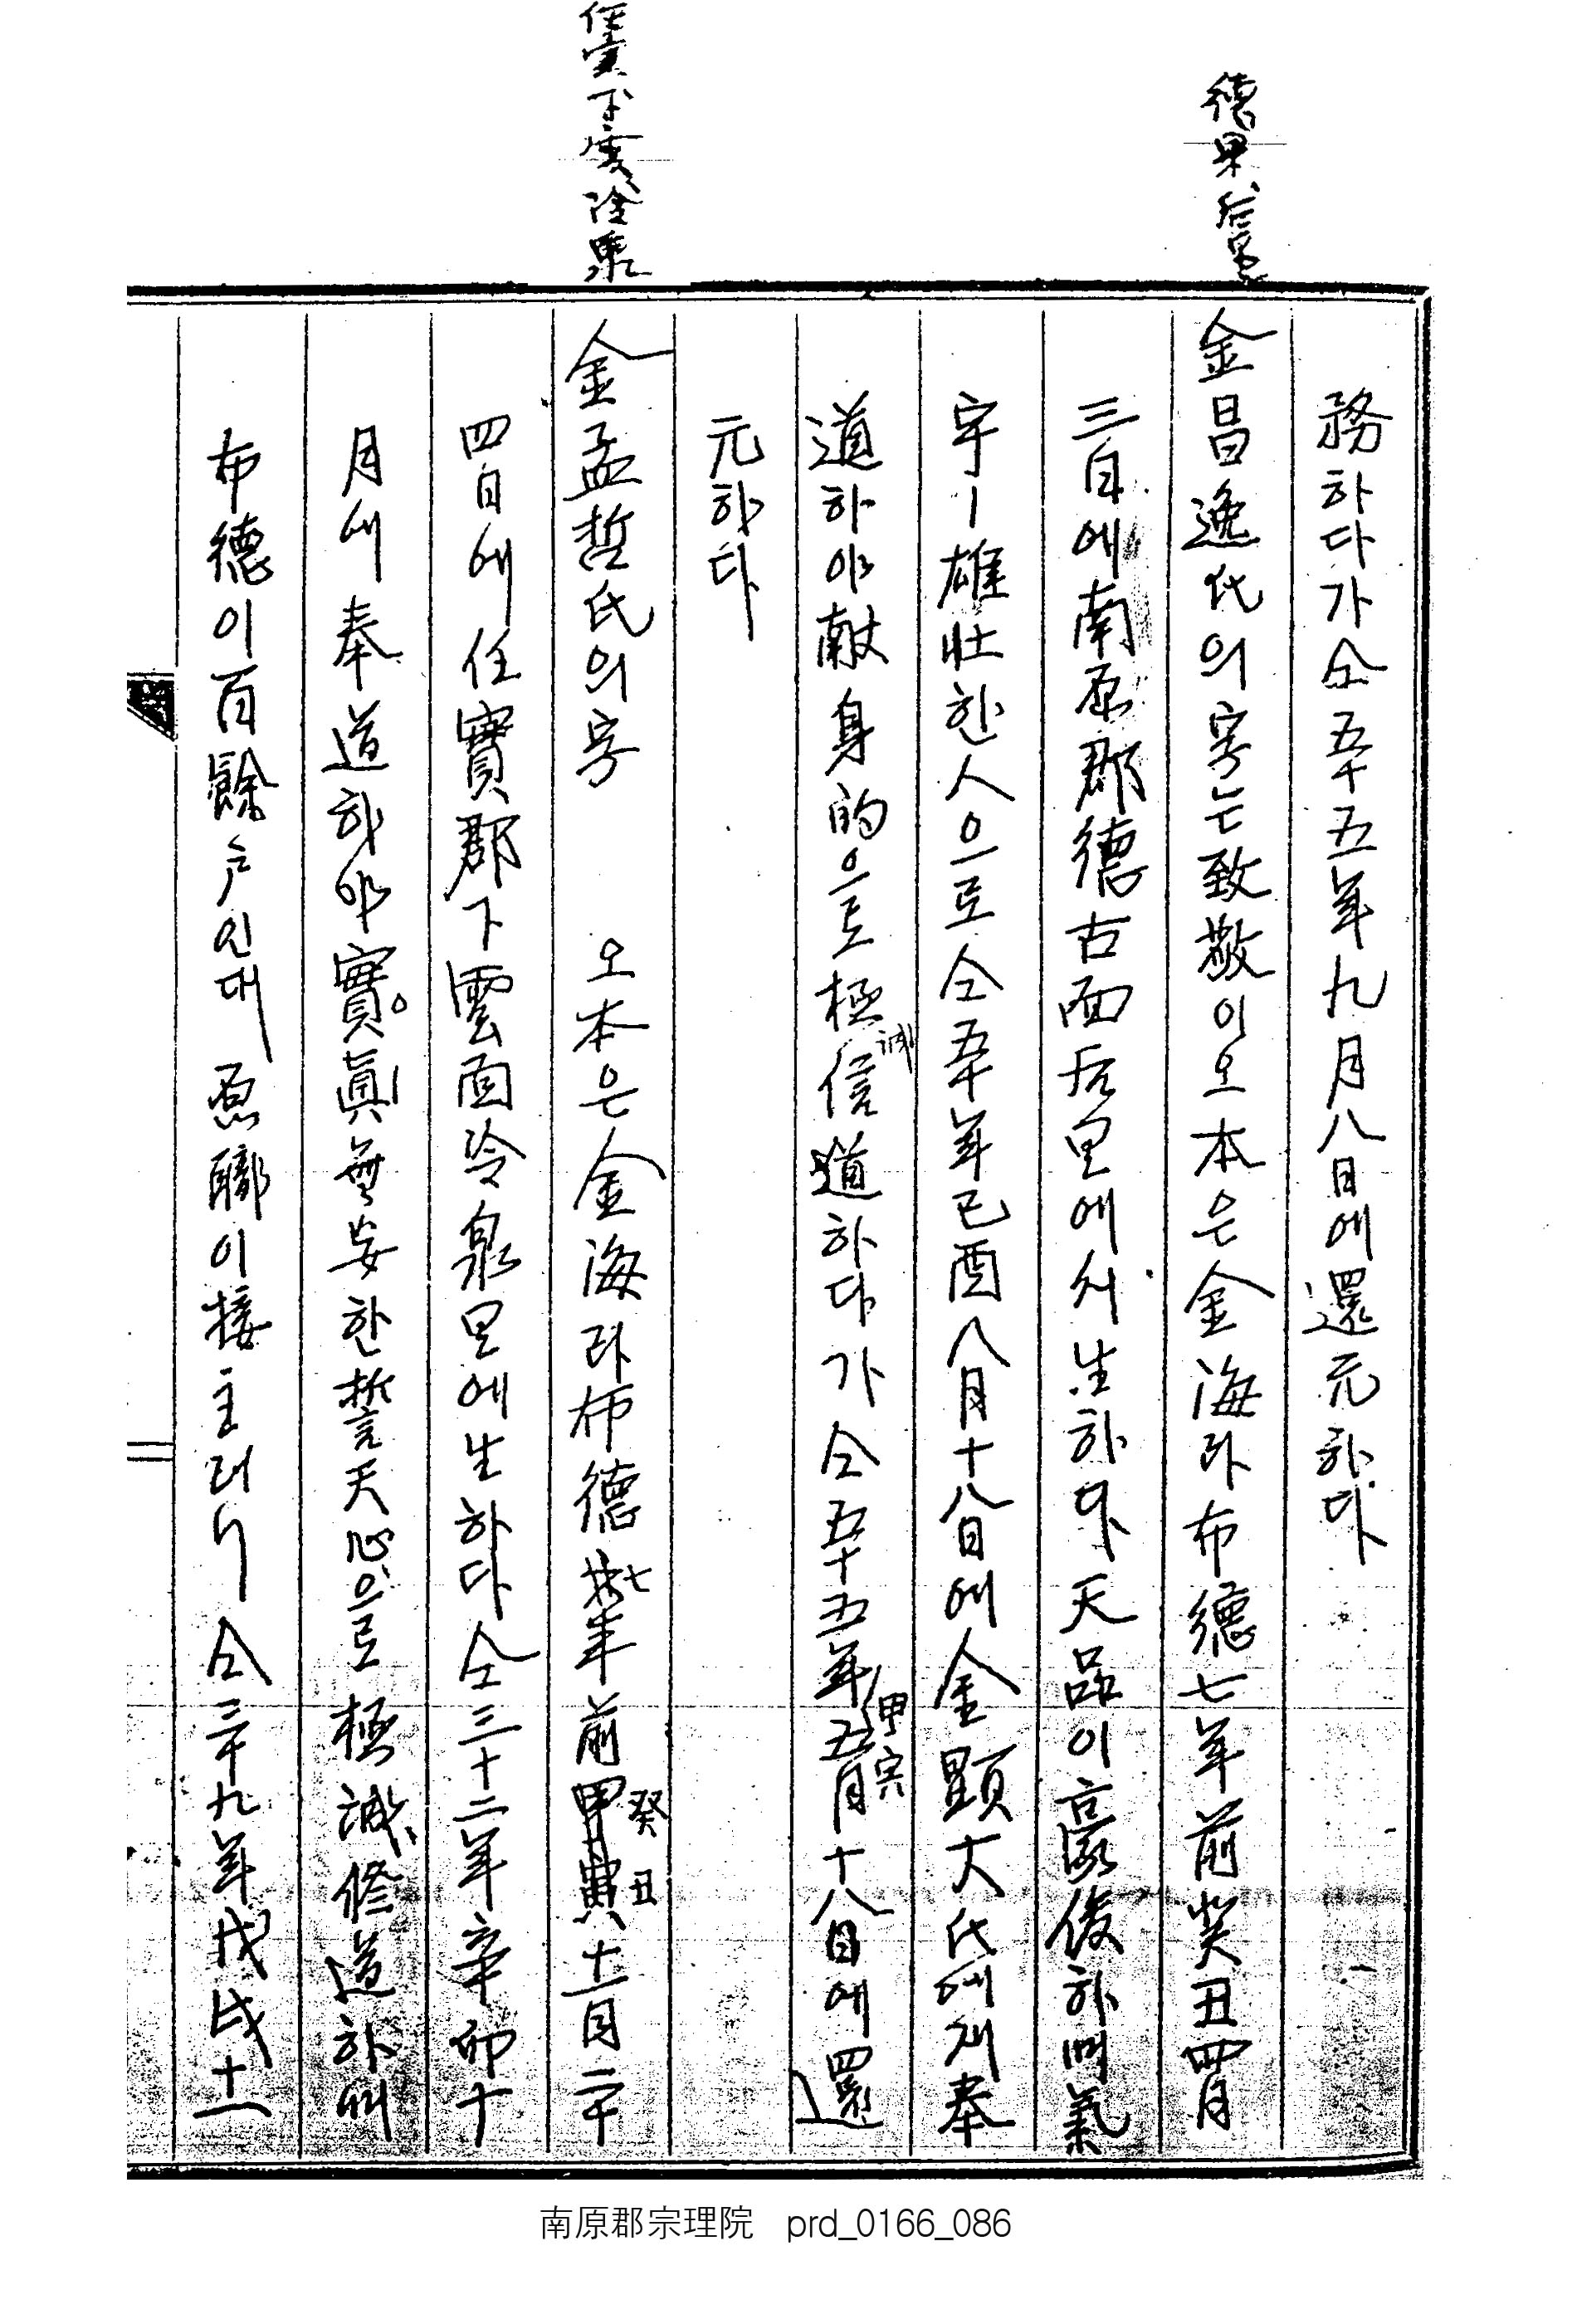 德果、后里
任實下雲冷泉
務하다가仝五十五年九月八日에還元하다
金昌逸氏의字는致敬이오本은金海라布德七年前癸丑四月
三日에南原郡德古面后里에서生하다天品이豪俊하며氣
宇ㅣ雄壯한人으로仝五十年己酉八月十八日에金顯大氏에게奉
道하야献身的으로極誠信道하다가仝五十五年甲寅五月十八日에還
元하다
金孟哲氏의字 오本은金海라布德七年前癸丑十一月二十
四日에任實郡下雲面冷泉里에生하다仝三十二年辛卯十
月에奉道하야眞實無妄한誓天心으로極誠修道하며
布德이百餘戶인대原職이接主러니仝三十九年戊戌十一
南原郡宗理院 prd_0166_086